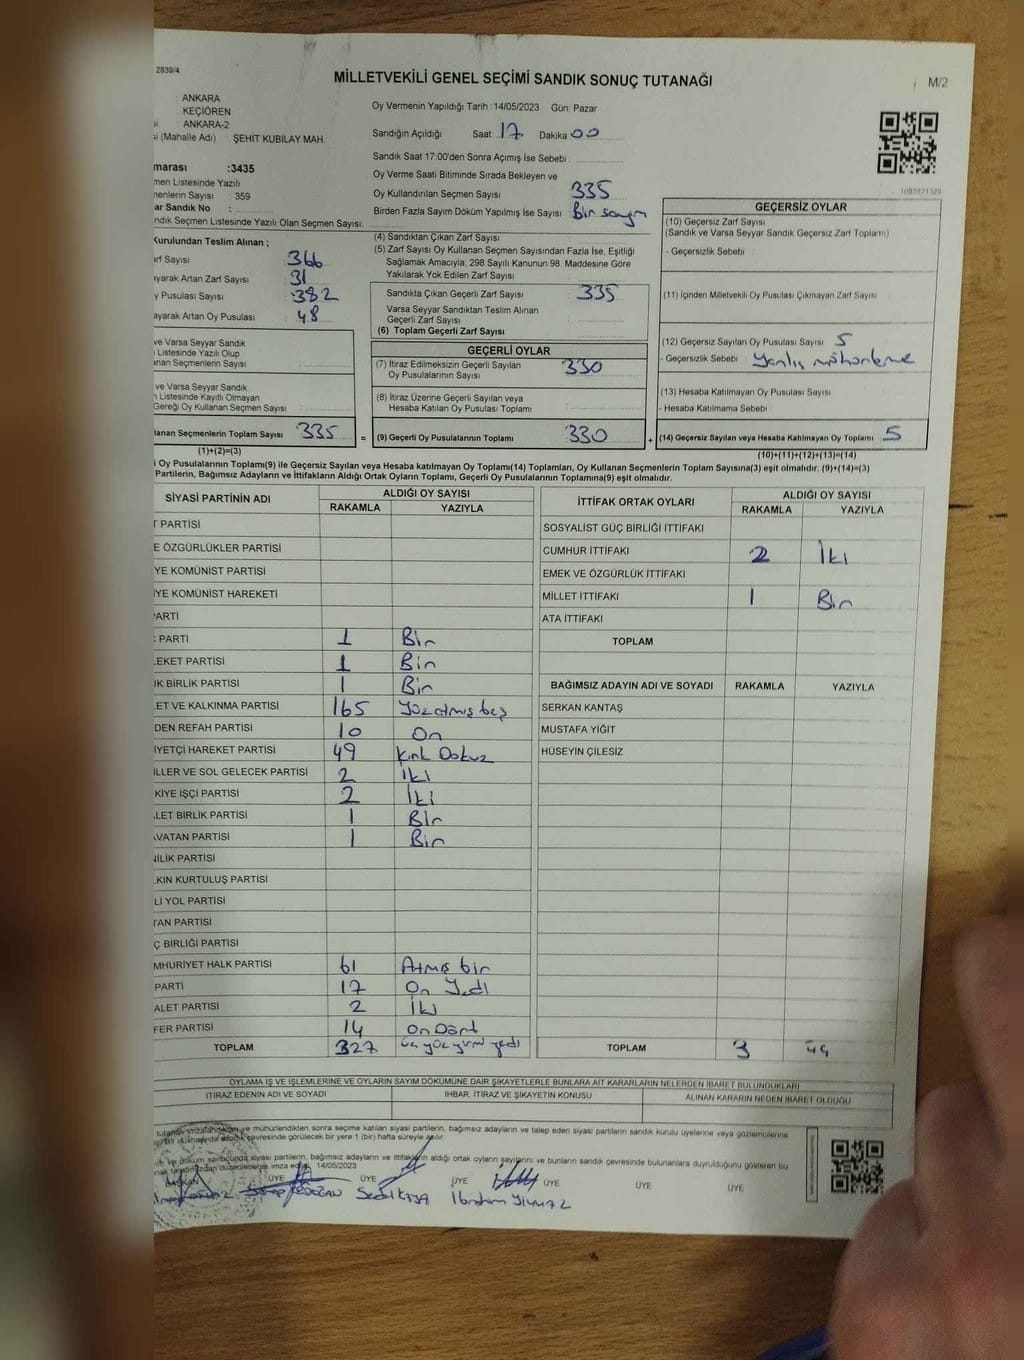 2839/4
MİLLETVEKİLİ GENEL SEÇİMİ SANDIK SONUÇ TUTANAĞI
M/2
: ANKARA
: KEÇİÖREN
: ANKARA-2
(Mahalle Adı) : ŞEHİT KUBİLAY MAH.
marası :3435
men Listesinde Yazılı
menlerin Sayısı : 359
ar Sandık No :
ndık Seçmen Listesinde Yazılı Olan Seçmen Sayısı:
Kurulundan Teslim Alınan ;
arf Sayısı : 366
ayarak Artan Zarf Sayısı : 31
y Pusulası Sayısı : 382
ayarak Artan Oy Pusulası : 48
ve Varsa Seyyar Sandık
Listesinde Yazılı Olup
anan Seçmenlerin Sayısı
ve Varsa Seyyar Sandık
n Listesinde Kayıtlı Olmayan
Gereği Oy Kullanan Seçmen Sayısı
lanan Seçmenlerin Toplam Sayısı 335
(1)+(2)=(3)
Oy Vermenin Yapıldığı Tarih :14/05/2023 Gün: Pazar
Sandığın Açıldığı Saat 17 Dakika 00
Sandık Saat 17:00'den Sonra Açımış İse Sebebi :
Oy Verme Saati Bitiminde Sırada Bekleyen ve
Oy Kullandırılan Seçmen Sayısı 335
Birden Fazla Sayım Döküm Yapılmış İse Sayısı Bir sayım
(4) Sandıktan Çıkan Zarf Sayısı
(5) Zarf Sayısı Oy Kullanan Seçmen Sayısından Fazla İse, Eşitliği
Sağlamak Amacıyla, 298 Sayılı Kanunun 98. Maddesine Göre
Yakılarak Yok Edilen Zarf Sayısı
Sandıkta Çıkan Geçerli Zarf Sayısı 335
Varsa Seyyar Sandıktan Teslim Alınan
Geçerli Zarf Sayısı
(6) Toplam Geçerli Zarf Sayısı
GEÇERLİ OYLAR
(7) İtiraz Edilmeksizin Geçerli Sayılan
Oy Pusulalarının Sayısı 330
(8) İtiraz Üzerine Geçerli Sayılan veya
Hesaba Katılan Oy Pusulası Toplamı
= (9) Geçerli Oy Pusulalarının Toplamı 330 +
1083821329
GEÇERSİZ OYLAR
(10) Geçersiz Zarf Sayısı
(Sandık ve Varsa Seyyar Sandık Geçersiz Zarf Toplamı)
- Geçersizlik Sebebi
(11) İçinden Milletvekili Oy Pusulası Çıkmayan Zarf Sayısı
(12) Geçersiz Sayılan Oy Pusulası Sayısı 5
- Geçersizlik Sebebi Yanlış mühürleme
(13) Hesaba Katılmayan Oy Pusulası Sayısı
- Hesaba Katılmama Sebebi
(14) Geçersiz Sayılan veya Hesaba Katılmayan Oy Toplamı 5
(10)+(11)+(12)+(13)=(14)
Oy Pusulalarının Toplamı(9) ile Geçersiz Sayılan veya Hesaba katılmayan Oy Toplamı(14) Toplamları, Oy Kullanan Seçmenlerin Toplam Sayısına(3) eşit olmalıdır. (9)+(14)=(3)
Partilerin, Bağımsız Adayların ve İttifakların Aldığı Ortak Oyların Toplamı, Geçerli Oy Pusulalarının Toplamına(9) eşit olmalıdır.
SİYASİ PARTİNİN ADI ALDIĞI OY SAYISI
RAKAMLA YAZIYLA
T PARTİSİ
E ÖZGÜRLÜKLER PARTİSİ
YE KOMÜNİST PARTİSİ
İYE KOMÜNİST HAREKETİ
PARTİ
PARTİ 1 Bir
EKET PARTİSİ 1 Bir
K BİRLİK PARTİSİ 1 Bir
ET VE KALKINMA PARTİSİ 165 Yüzatmış beş
DEN REFAH PARTİSİ 10 On
İYETÇİ HAREKET PARTİSİ 49 Kırk Dokuz
LLER VE SOL GELECEK PARTİSİ 2 İki
KİYE İŞÇİ PARTİSİ 2 İki
LET BİRLİK PARTİSİ 1 Bir
VATAN PARTİSİ 1 Bir
İLİK PARTİSİ
KIN KURTULUŞ PARTİSİ
Lİ YOL PARTİSİ
TAN PARTİSİ
Ç BİRLİĞİ PARTİSİ
MHURİYET HALK PARTİSİ 61 Atmış bir
PARTİ 17 On Yedi
ALET PARTİSİ 2 İki
FER PARTİSİ 14 On Dört
TOPLAM 327 üç yüz yirmi yedi
İTTİFAK ORTAK OYLARI ALDIĞI OY SAYISI
RAKAMLA YAZIYLA
SOSYALİST GÜÇ BİRLİĞİ İTTİFAKI
CUMHUR İTTİFAKI 2 İki
EMEK VE ÖZGÜRLÜK İTTİFAKI
MİLLET İTTİFAKI 1 Bir
ATA İTTİFAKI
TOPLAM
BAĞIMSIZ ADAYIN ADI VE SOYADI RAKAMLA YAZIYLA
SERKAN KANTAŞ
MUSTAFA YİĞİT
HÜSEYİN ÇİLESİZ
TOPLAM 3 üç
OYLAMA İŞ VE İŞLEMLERİNE VE OYLARIN SAYIM DÖKÜMÜNE DAİR ŞİKAYETLERLE BUNLARA AİT KARARLARIN NELERDEN İBARET BULUNDUKLARI
İTİRAZ EDENİN ADI VE SOYADI İHBAR, İTİRAZ VE ŞİKAYETİN KONUSU ALINAN KARARIN NEDEN İBARET OLDUĞU
ve mühürlendikten sonra seçime katılan siyasi partilerin, bağımsız adayların ve talep eden siyasi partilerin sandık kurulu üyelerine veya gözlemcilerine
çevresinde görülecek bir yere 1 (bir) hafta süreyle asılır.
siyasi partilerin, bağımsız adayların ve ittifakların aldığı ortak oyların sayılarını ve bunların sandık çevresinde bulunanlara duyrulduğunu gösteren bu
imza edildi. 14/05/2023
BAŞKAN ÜYE ÜYE ÜYE ÜYE ÜYE ÜYE
Sedat KAYA İbrahim YILMAZ